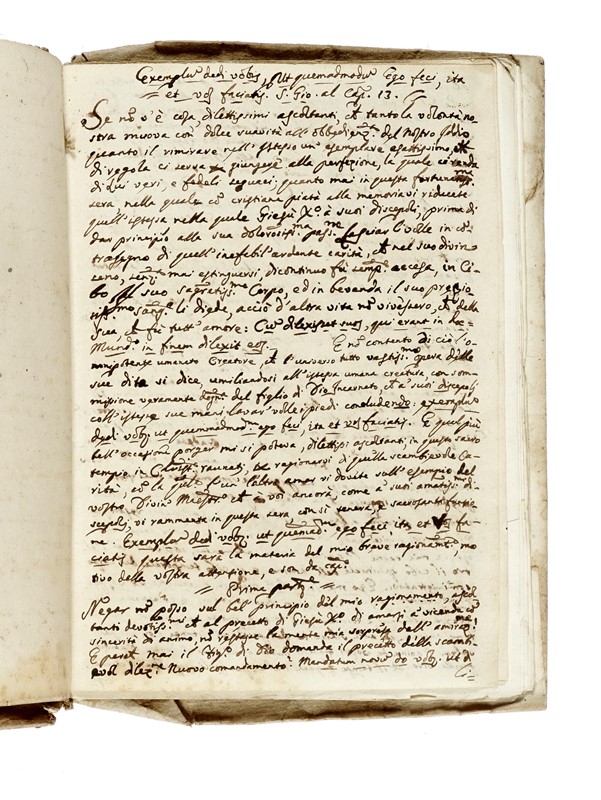 Exemplu' dedi vobis, Ut quemadmodu' Ego feci, ita
= et vos faciatis. S. Gio. al Cap. 13. =
Se no' v'è cosa dilettissimi ascoltanti, che tanto la volontà no=
stra muova con dolce suavità all'obbedienza del nostro Iddio,
quanto il rimirare nell'istesso un esemplare esattissimo, che
di regola ci serva per giungere alla perfezione, la quale ce renda
di lui veri, e fedeli seguaci; quanto mai in questa fortunatissma
sera nella quale co' cristiana pietà alla memoria vi riducete
quell'istessa nella quale Giesù Xo. à suoi discepoli, prima di
dar principio alla sua dolorosissma passne lasciar li volle in co'=
trasegno di quell'ineffabil'ardente carità, che nel suo divin
seno, senza mai estinguersi, di continuo fù sempre accesa, in Ci=
bo il suo sagratissmo Corpo, ed in bevanda il suo prezio
sissmo sangue li diede, acciò d'altra vita no' vivessero, che della
sua, che fù tutt'amore: Cu' dilexisset suos, qui erant in hoc
Mundo, in finem dilexit eos. E no' contento di ciò l'o=
nnipotente umanato Creatore, che l'universo tutto vastissmo opera delle
sue dita si dice, umiliandosi all'istessa umana creatura con som=
missione veramente degna del figlio di Dio Incarnato, che a' suoi discepoli
coll'istesse sue mani lavar volle i piedi concludendo: exemplu'
dedi vobis ut quemadmodum ego feci, ita et vos faciatis. E qual più
bell'occasione porger mi si poteva, dilettissi ascoltanti in questo sacro
tempio in Christo raunati, di ragionarvi di quella scambievole Ca=
rità, co' la quale l'un l'altro amar vi dovete sull'esempio del
vostro Divin Maestro che a voi ancora, come a' suoi amatissmi di=
scepoli, vi rammenta in questa sera con sì tenere, e sacrosante
me. Exemplu' dedi vobis. ut quemad.m ego feci ita et vos fa=
ciatis questa sarà la materia del mio breve ragionamto, mo
tivo della vostra attenzione, e son da capo.
= Prima parte =
Negar no' posso sul bel principio del mio ragionamento, ascol
tanti devotissmi, che al precetto di Giesù Xo. di amarsi a vicenda co'
sincerità di animo, no' restasse la mente mia sorpresa dall'ammirazne!
E perchè mai il Figlo di Dio domanda il precetto della scambi=
evol dilezne Nuovo comandamento: Mandatum novu' do vobis. ut di
li=